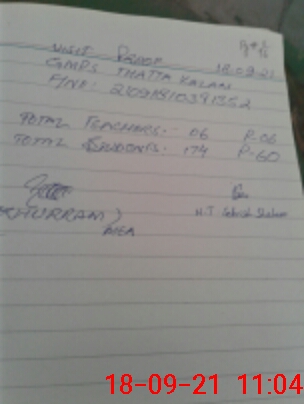 VISIT PROOF
18-09-21
GMPS THATTA KALAN
TOTAL TEACHERS:- 06 P-06
TOTAL STUDENTS:- 174 P-60
KHURRAM)
MEA
H.T
18-09-21 11:04